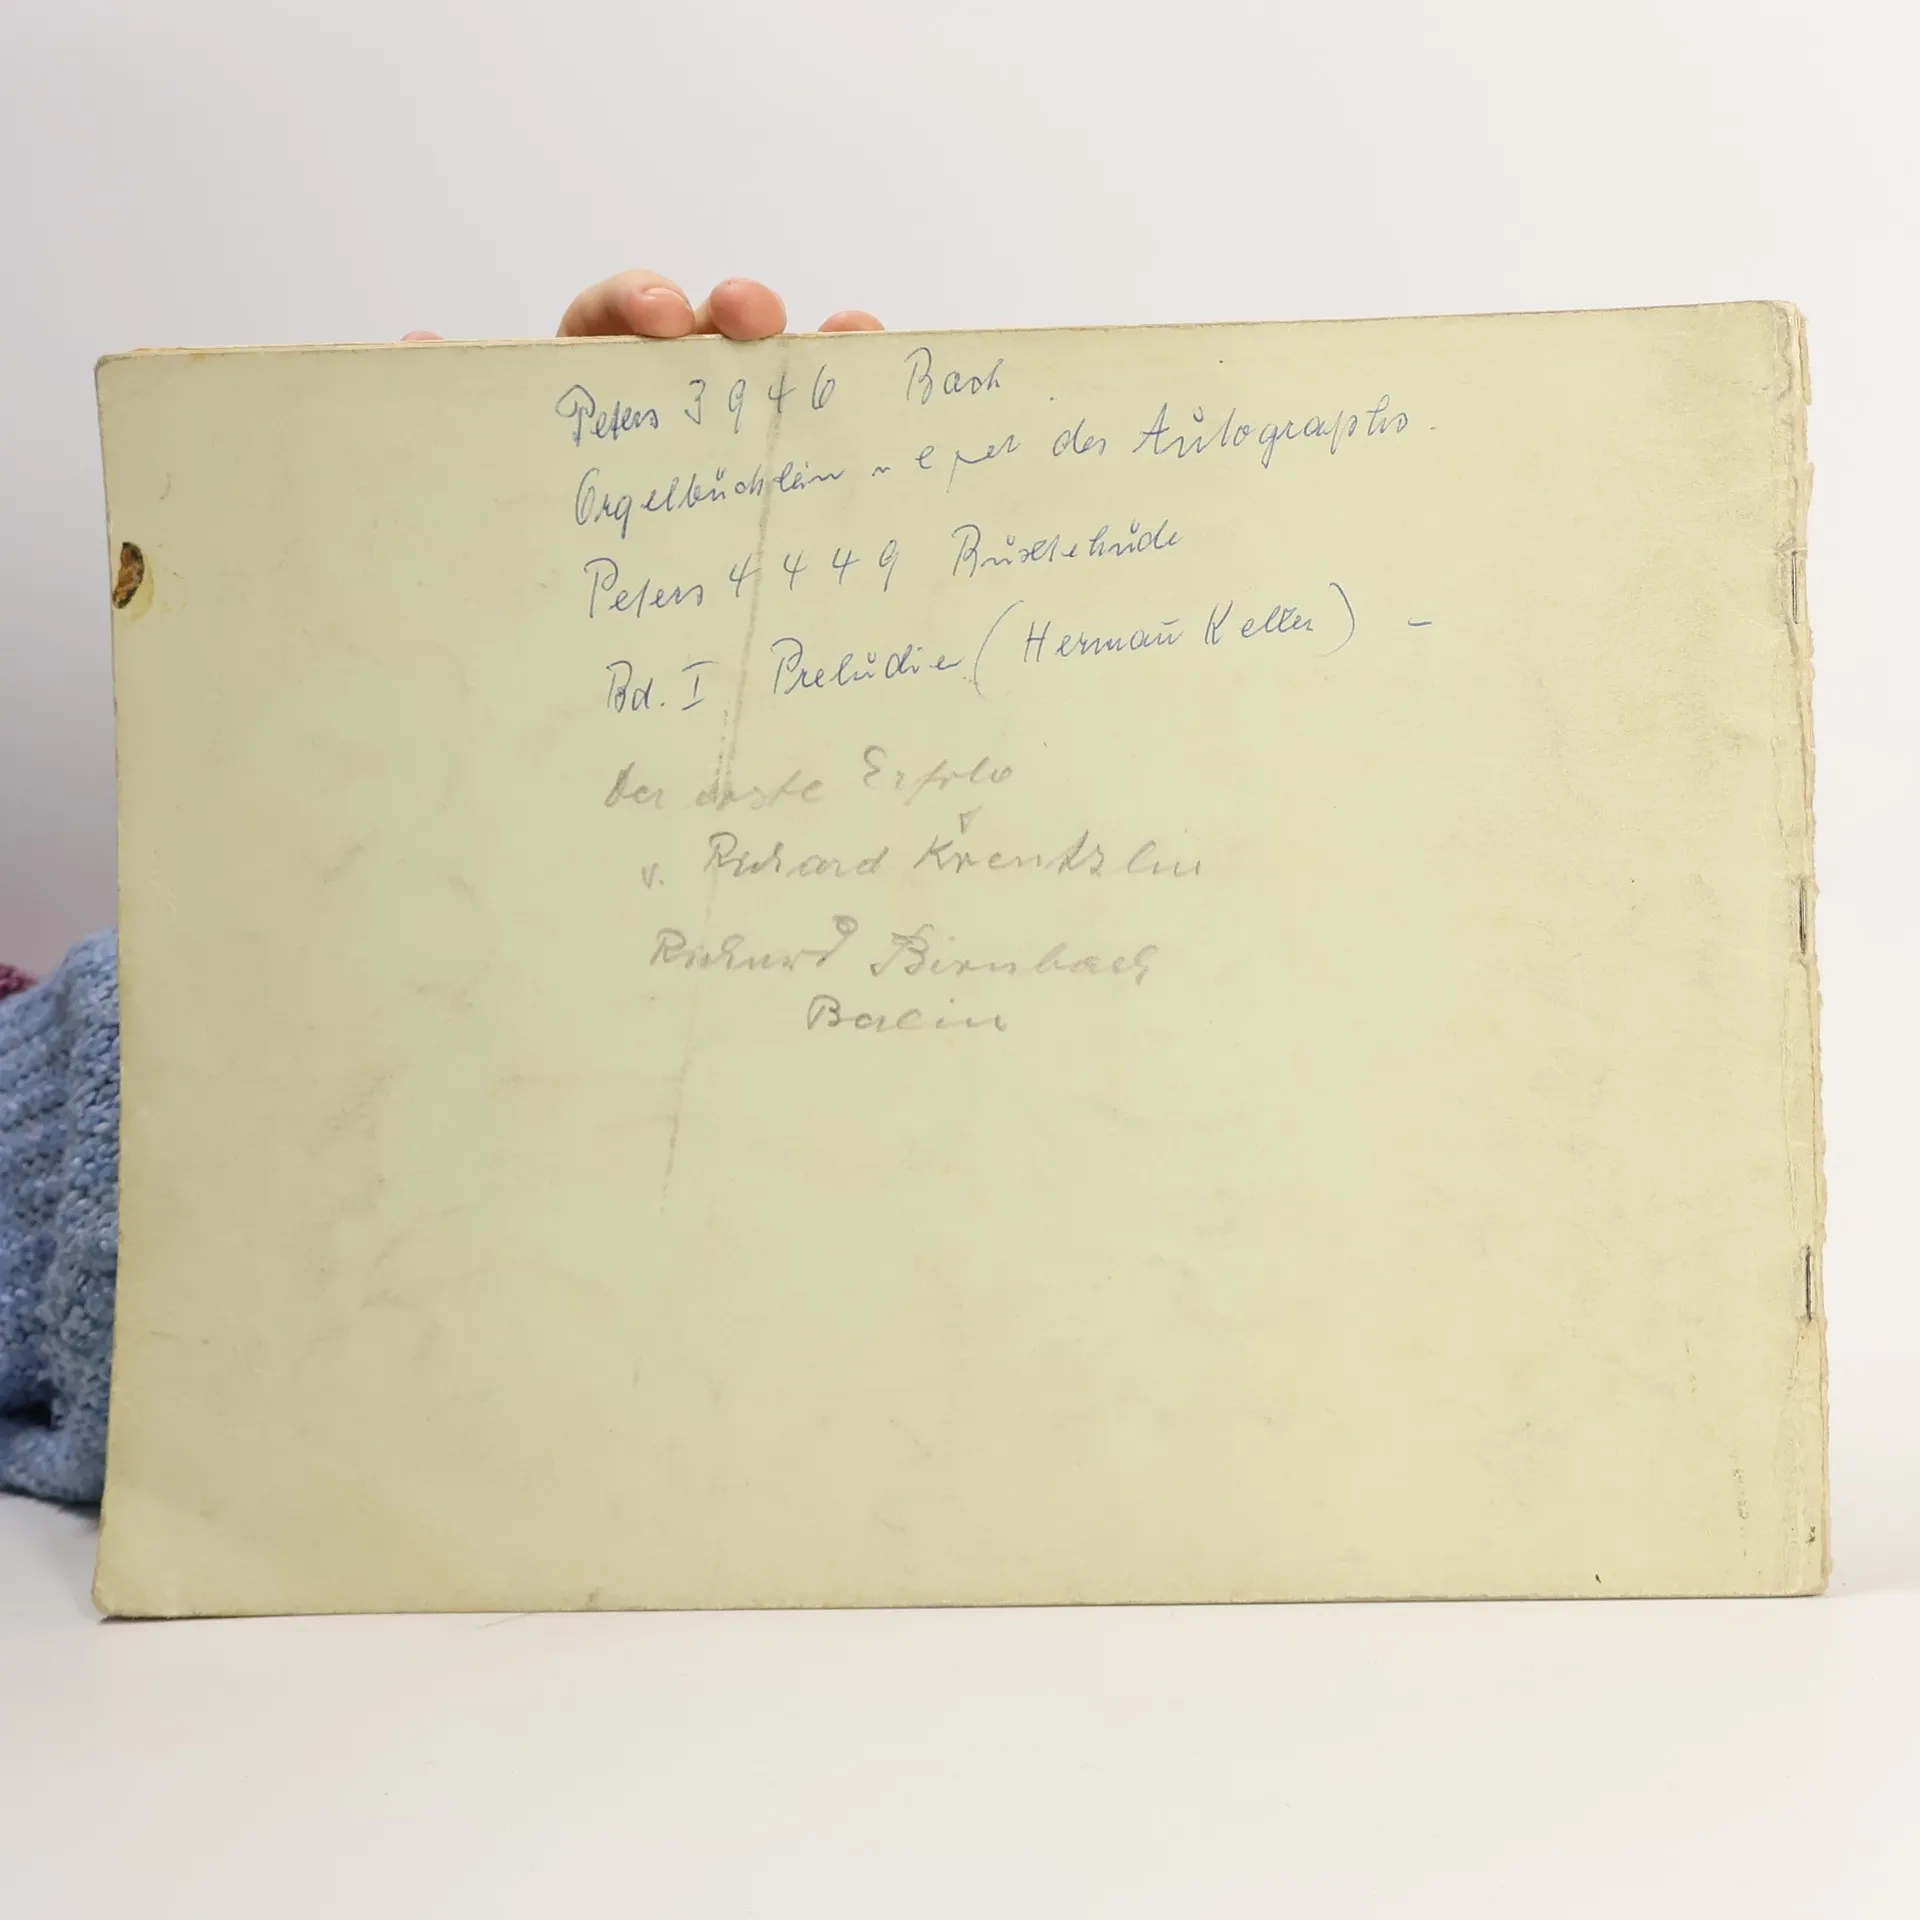 Peters 3946 Bach
Orgelbüchlein des Autographs.
Peters 4449 Buxtehude
Bd. I Preludien (Hermann Keller) –
Der erste Erfolg
v. Richard Krentzlin
Richard Birnbach
Berlin